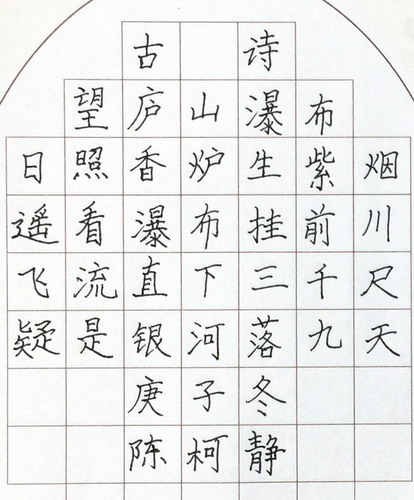 古诗
望庐山瀑布
日照香炉生紫烟
遥看瀑布挂前川
飞流直下三千尺
疑是银河落九天
庚子冬
陈柯静